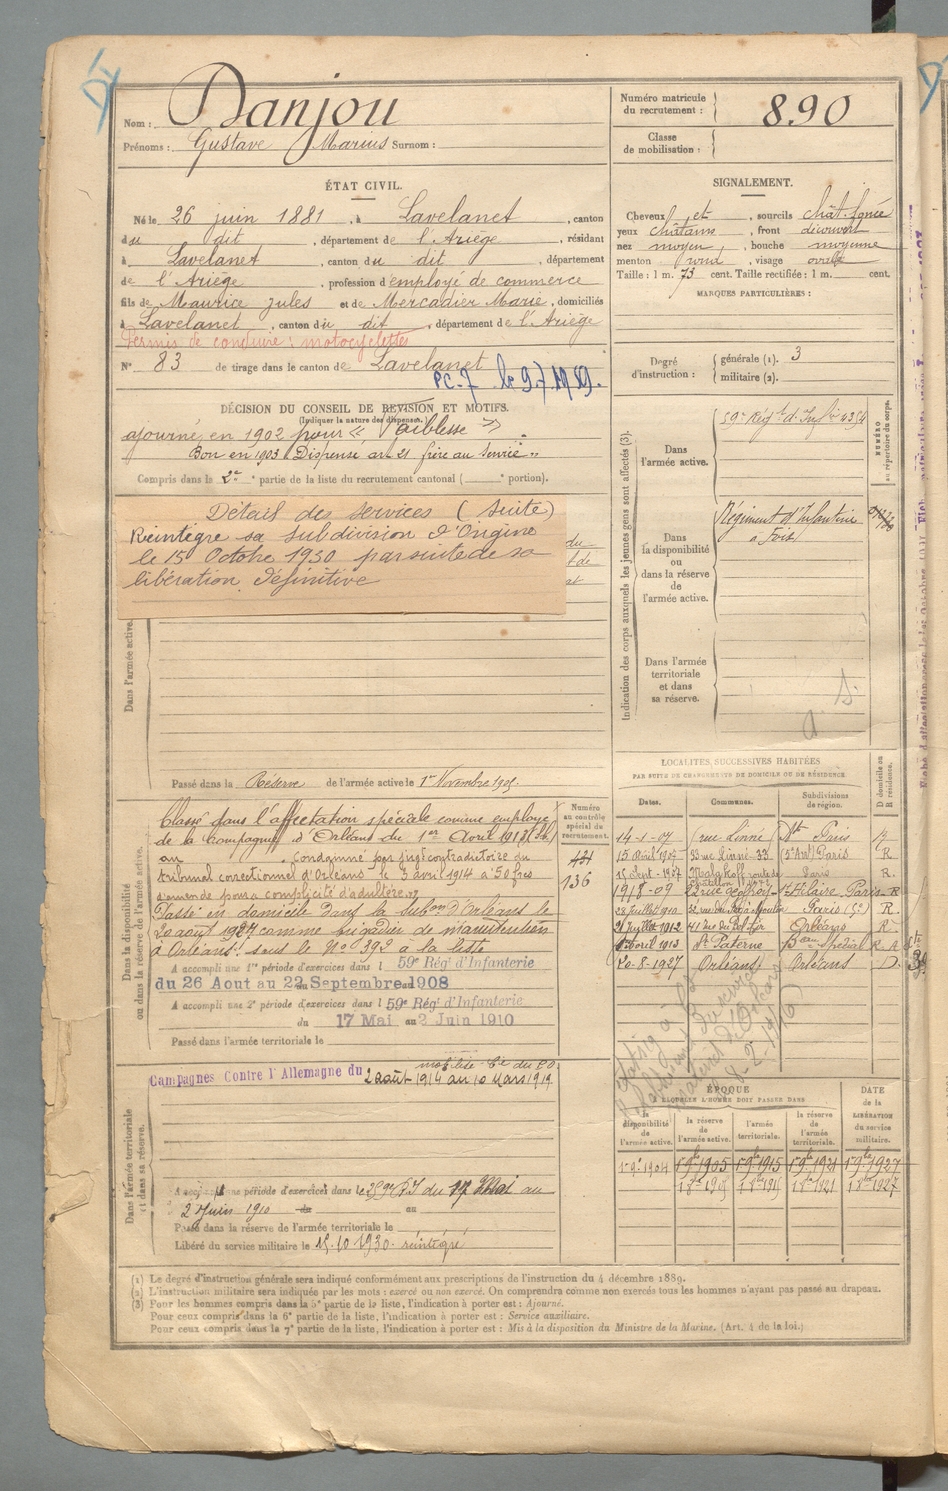 Nom : Danjou
Prénoms : Gustave Marius Surnom :
Numéro matricule du recrutement : 890
Classe de mobilisation :
ÉTAT CIVIL.
Né le 26 juin 1881, à Lavelanet, canton
du dit, département de l'Ariège, résidant
à Lavelanet, canton du dit, département
de l'Ariège, profession d'employé de commerce
fils de Maurice Jules et de Mercadier Marie, domiciliés
à Lavelanet, canton du dit, département de l'Ariège
Permis de conduire : motocyclettes
N° 83 de tirage dans le canton de Lavelanet
PC. 7 le 9.7.1919.
SIGNALEMENT.
Cheveux et, sourcils chât. foncé
yeux châtains, front découvert
nez moyen, bouche moyenne
menton rond, visage ovale
Taille : 1 m. 73 cent. Taille rectifiée : 1 m. cent.
MARQUES PARTICULIÈRES :
Degré d'instruction : générale (1). 3
militaire (2).
DÉCISION DU CONSEIL DE REVISION ET MOTIFS.
(Indiquer la nature des dispenses.)
ajourné en 1902 pour « Faiblesse »
Bon en 1903 Dispensé art 21 frère au service
Compris dans la 2e partie de la liste du recrutement cantonal ( portion).
Détail des services (suite)
Réintègre sa subdivision d'Origine
le 15 Octobre 1930 par suite de sa
libération définitive
Dans l'armée active.
Passé dans la Réserve de l'armée active le 1er Novembre 1905.
Indication des corps auxquels les jeunes gens sont affectés (3).
NUMÉRO au répertoire du corps.
Dans l'armée active.
59e Rég.t d'Inf.ie 4354
Dans la disponibilité ou dans la réserve de l'armée active.
Régiment d'Infanterie
à Foix
Dans l'armée territoriale et dans sa réserve.
LOCALITÉS SUCCESSIVES HABITÉES
PAR SUITE DE CHANGEMENTS DE DOMICILE OU DE RÉSIDENCE
Dates. Communes. Subdivisions de région. D domicile ou R résidence.
14-1-07 (rue Linné) Paris R
15 Avril 1907 33 rue Linné 33 (5e Arrt) Paris R.
15 Sept. 1907 Malakoff route de Châtillon Paris R.
28 Juillet 1910 Paris (5e) R.
Juillet 1912 41 rue Orléans R.
Avril 1913 St Paterne Spécial
20-8-1927 Orléans Orléans D.
Dans la disponibilité ou dans la réserve de l'armée active.
Numéro au contrôle spécial du recrutement.
136
Classé dans l'affectation spéciale comme employé
de la Compagnie d'Orléans du 1er Avril 1913
Condamné par jug.t contradictoire du
tribunal correctionnel d'Orléans le 3 avril 1914 à 50 frcs
d'amende pour complicité d'adultère.
Passé en domicile dans la Subon d'Orléans le
20 août 1927 comme brigadier de manutention
à Orléans sous le N° 392 à la liste
A accompli une 1re période d'exercices dans l 59e Régt d'Infanterie
du 26 Aout au 22 Septembre 1908
A accompli une 2e période d'exercices dans l 59e Régt d'Infanterie
du 17 Mai au 2 Juin 1910
Passé dans l'armée territoriale le
Dans l'armée territoriale et dans sa réserve.
mobilisé Cie du PO
Campagnes Contre l'Allemagne du 2 août 1914 au 10 Mars 1919
A accompli une période d'exercices dans le 59e RI du 17 Mai au
2 Juin 1910 au
Passé dans la réserve de l'armée territoriale le
Libéré du service militaire le 15.10.1930. réintégré
ÉPOQUE
À LAQUELLE L'HOMME DOIT PASSER DANS
la disponibilité de l'armée active. la réserve de l'armée active. l'armée territoriale. la réserve de l'armée territoriale. DATE de la LIBÉRATION du service militaire.
1er 9bre 1904 1er 9bre 1905 1er 9bre 1915 1er 9bre 1921 1er 9bre 1927
(1) Le degré d'instruction générale sera indiqué conformément aux prescriptions de l'instruction du 4 décembre 1889.
(2) L'instruction militaire sera indiquée par les mots : exercé ou non exercé. On comprendra comme non exercés tous les hommes n'ayant pas passé au drapeau.
(3) Pour les hommes compris dans la 5e partie de la liste, l'indication à porter est : Ajourné.
Pour ceux compris dans la 6e partie de la liste, l'indication à porter est : Service auxiliaire.
Pour ceux compris dans la 7e partie de la liste, l'indication à porter est : Mis à la disposition du Ministre de la Marine. (Art. 4 de la loi.)